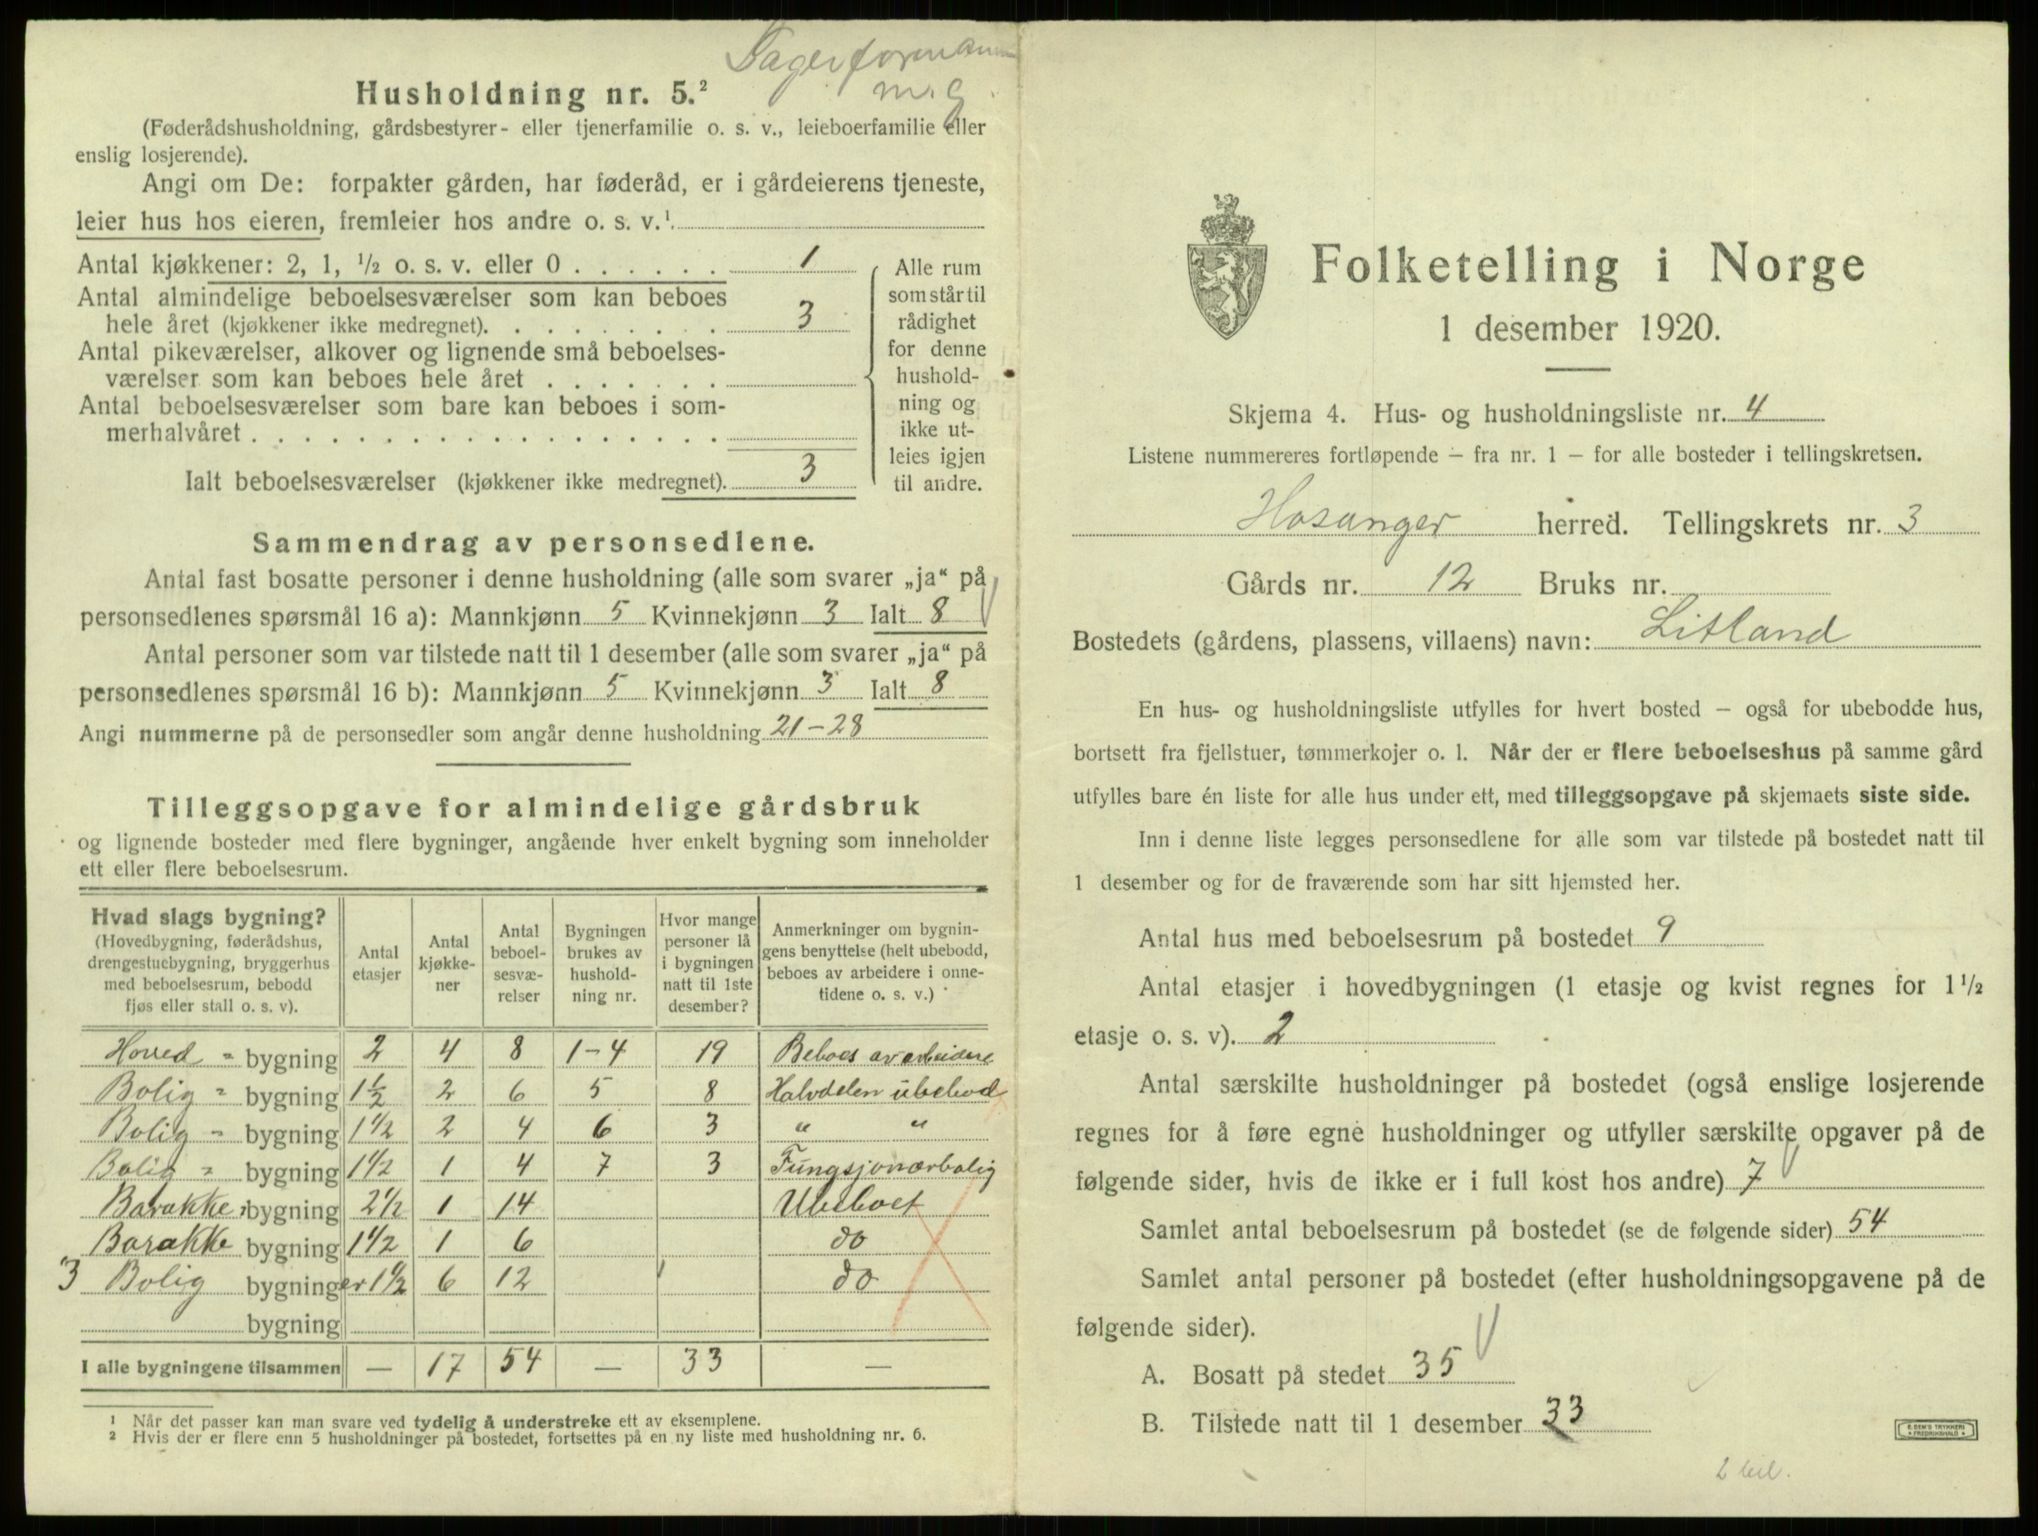 Lagerformann
m.g.
Husholdning nr. 5.²
(Føderådshusholdning, gårdsbestyrer- eller tjenerfamilie o. s. v., leieboerfamilie eller
enslig losjerende).
Angi om De: forpakter gården, har føderåd, er i gårdeierens tjeneste,
leier hus hos eieren, fremleier hos andre o. s. v.¹
Antal kjøkkener: 2, 1, ½ o. s. v. eller 0 . . . . . . 1
Antal almindelige beboelsesværelser som kan beboes
hele året (kjøkkener ikke medregnet). . . . . . . . . 3
Antal pikeværelser, alkover og lignende små beboelses-
værelser som kan beboes hele året . . . . . . .
Antal beboelsesværelser som bare kan beboes i som-
merhalvåret . . . . . . . . . . . . . . . . . .
Ialt beboelsesværelser (kjøkkener ikke medregnet). 3
Alle rum
som står til
rådighet
for denne
hushold-
ning og
ikke ut-
leies igjen
til andre.
Sammendrag av personsedlene.
Antal fast bosatte personer i denne husholdning (alle som svarer „ja“ på
personsedlenes spørsmål 16 a): Mannkjønn 5 Kvinnekjønn 3 Ialt 8
Antal personer som var tilstede natt til 1 desember (alle som svarer „ja“ på
personsedlenes spørsmål 16 b): Mannkjønn 5 Kvinnekjønn 3 Ialt 8
Angi nummerne på de personsedler som angår denne husholdning 21-28
Tilleggsopgave for almindelige gårdsbruk
og lignende bosteder med flere bygninger, angående hver enkelt bygning som inneholder
ett eller flere beboelsesrum.
Hvad slags bygning?
(Hovedbygning, føderådshus,
drengestuebygning, bryggerhus
med beboelsesrum, bebodd
fjøs eller stall o. s. v).
Antal
etasjer
Antal
kjøkke-
ner
Antal
beboel-
sesvæ-
relser
Bygningen
brukes av
hushold-
ning nr.
Hvor mange
personer lå
i bygningen
natt til 1ste
desember?
Anmerkninger om bygnin-
gens benyttelse (helt ubebodd,
beboes av arbeidere i onne-
tidene o. s. v.)
Hoved - bygning 2 4 8 1-4 19 Beboes av arbeidere
Bolig - bygning 1½ 2 6 5 8 Halvdelen ubebod
Bolig - bygning 1½ 2 4 6 3 " "
Bolig - bygning 1½ 1 4 7 3 Fungsjonærbolig
Barakke - bygning 2½ 1 14 Ubeboet
Barakke bygning 1½ 1 6 do
3 Bolig bygninger 1½ 6 12 do
bygning
I alle bygningene tilsammen — 17 54 — 33 —
¹ Når det passer kan man svare ved tydelig å understreke ett av eksemplene.
² Hvis der er flere enn 5 husholdninger på bostedet, fortsettes på en ny liste med husholdning nr. 6.
Folketelling i Norge
1 desember 1920.
Skjema 4. Hus- og husholdningsliste nr. 4
Listene nummereres fortløpende – fra nr. 1 – for alle bosteder i tellingskretsen.
Hosanger herred. Tellingskrets nr. 3
Gårds nr. 12 Bruks nr.
Bostedets (gårdens, plassens, villaens) navn: Litland
En hus- og husholdningsliste utfylles for hvert bosted – også for ubebodde hus,
bortsett fra fjellstuer, tømmerkojer o. l. Når der er flere beboelseshus på samme gård
utfylles bare én liste for alle hus under ett, med tilleggsopgave på skjemaets siste side.
Inn i denne liste legges personsedlene for alle som var tilstede på bostedet natt til
1 desember og for de fraværende som har sitt hjemsted her.
Antal hus med beboelsesrum på bostedet 9
Antal etasjer i hovedbygningen (1 etasje og kvist regnes for 1½
etasje o. s. v). 2
Antal særskilte husholdninger på bostedet (også enslige losjerende
regnes for å føre egne husholdninger og utfyller særskilte opgaver på de
følgende sider, hvis de ikke er i full kost hos andre) 7
Samlet antal beboelsesrum på bostedet (se de følgende sider) 54
Samlet antal personer på bostedet (efter husholdningsopgavene på de
følgende sider).
A. Bosatt på stedet 35
B. Tilstede natt til 1 desember 33